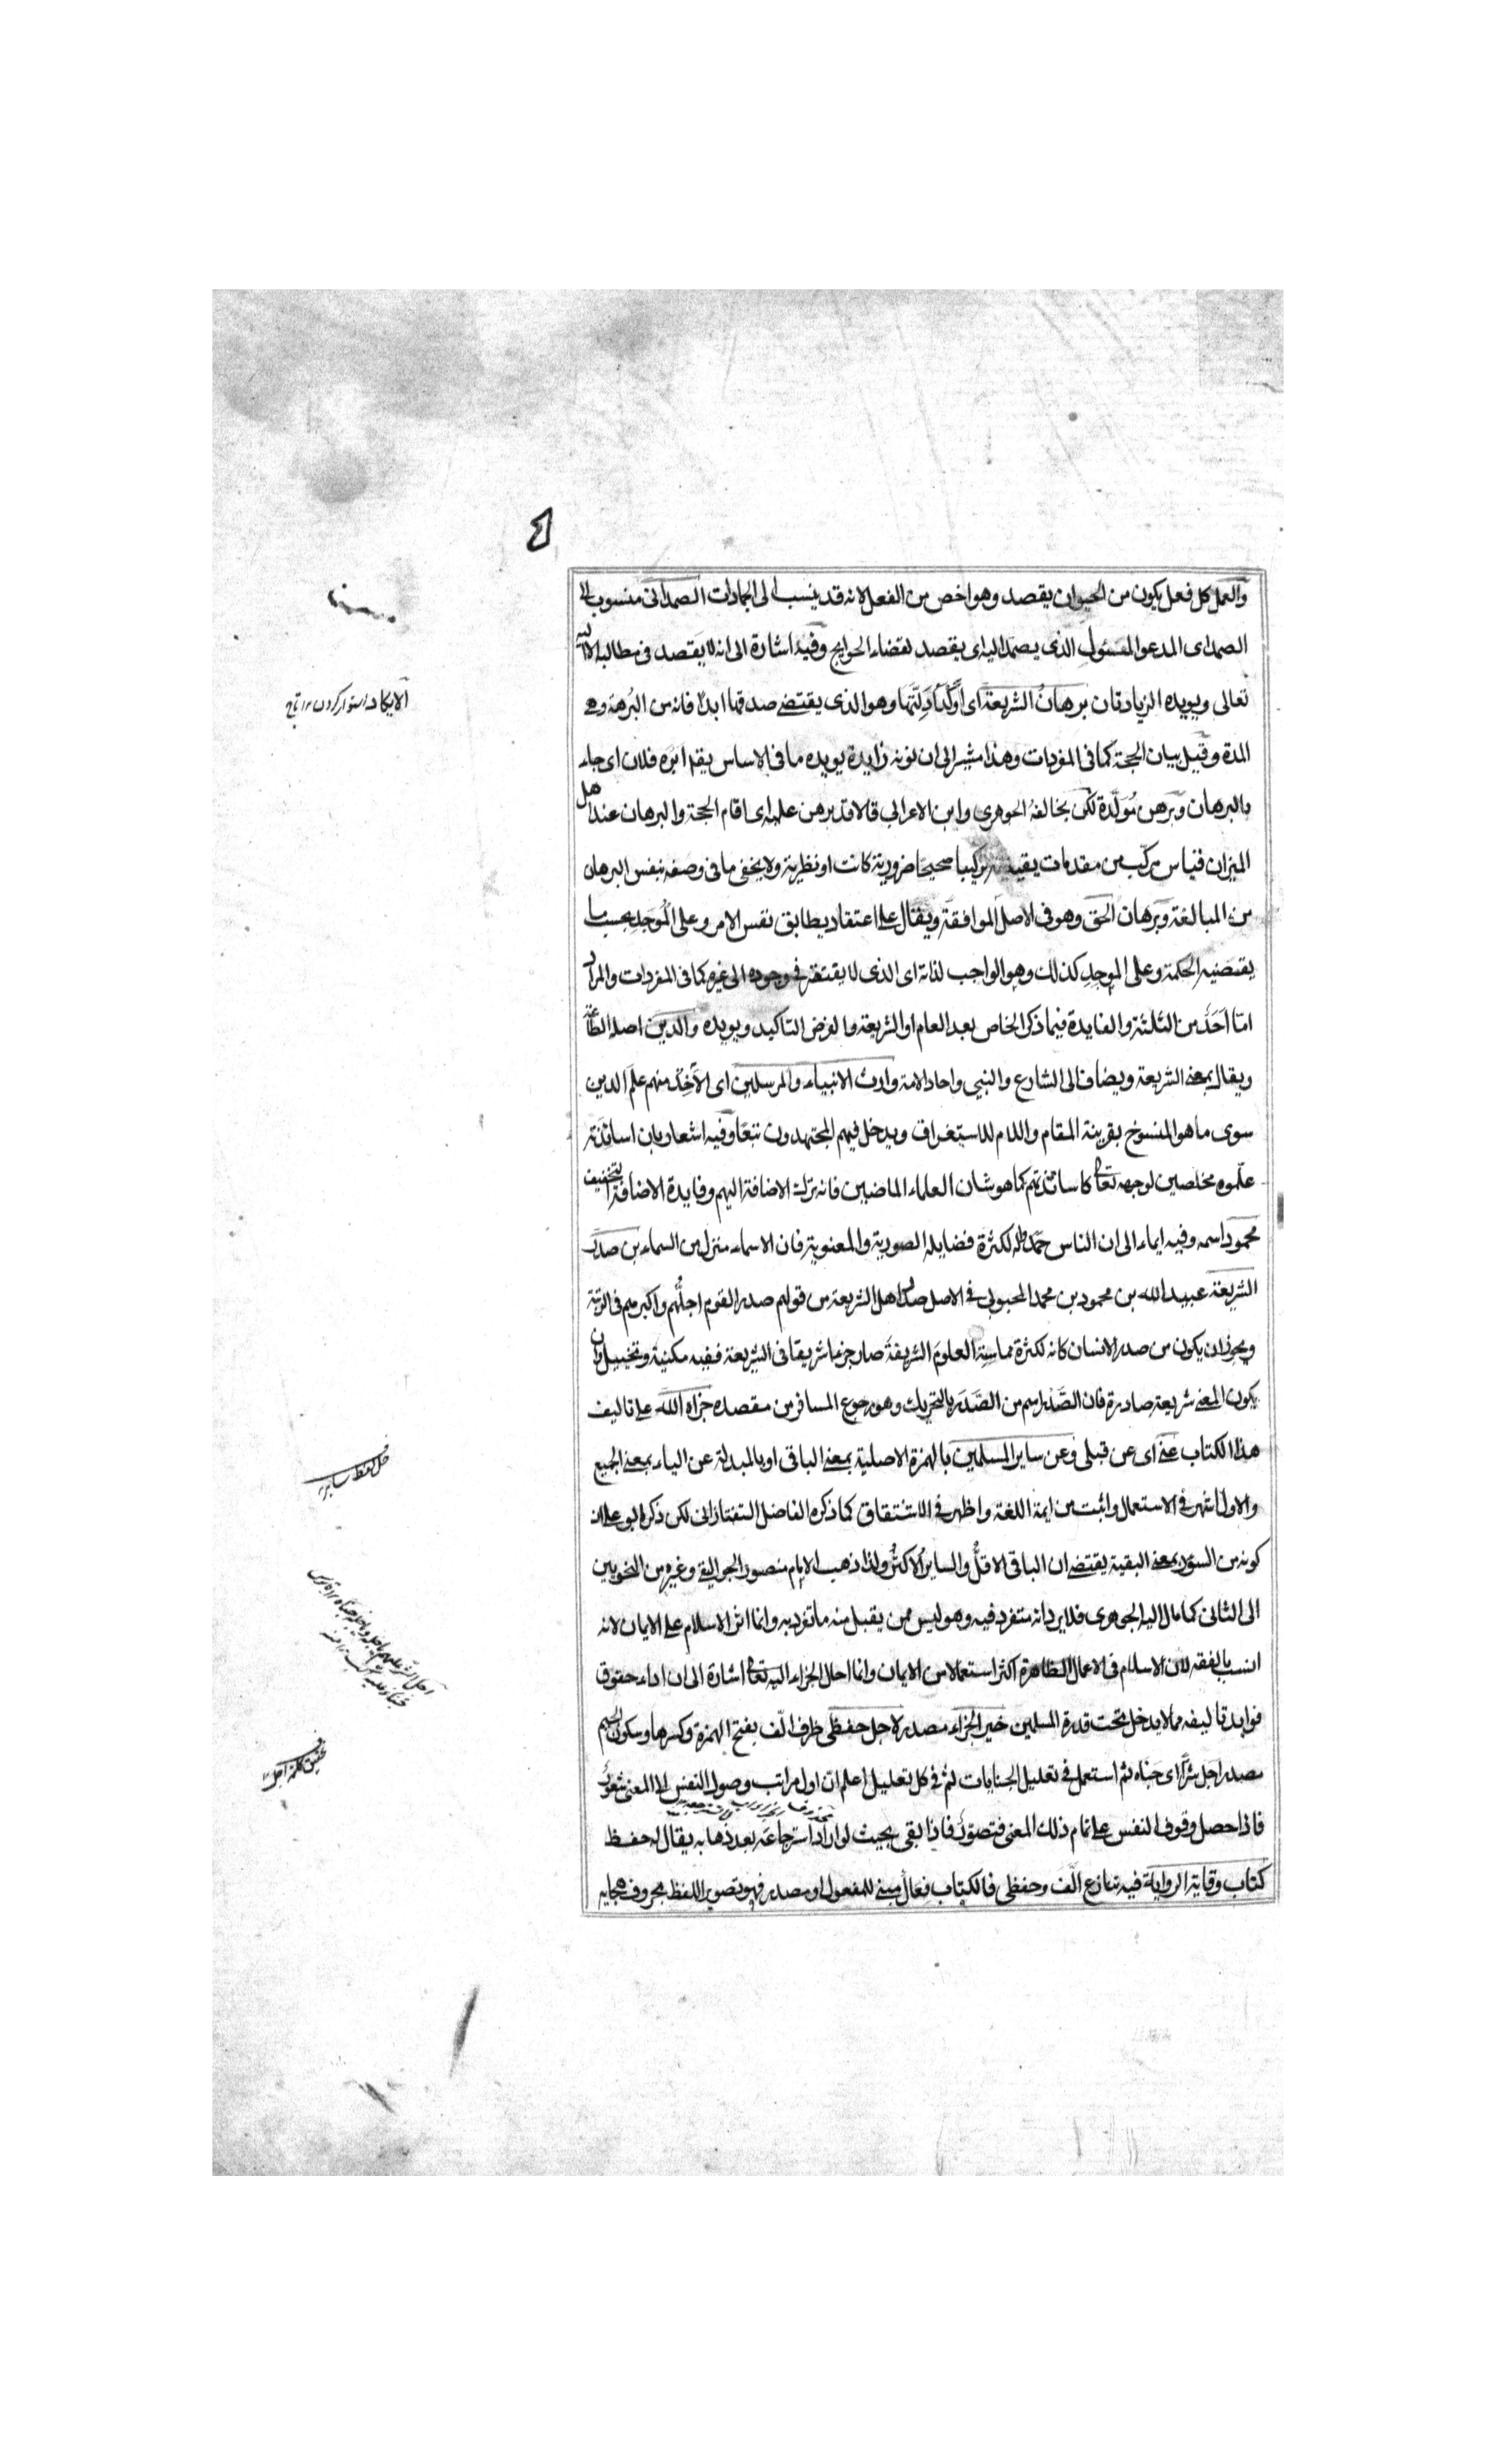 والعمل كل فعل يكون من الحيوان يقصد وهو اخص من الفعل لانه قد ينسب الى الجمادات الصمداني منسوب الى
الصمد اى المدعو المسئول الذى يصمد اليه اى يقصد لقضاء الحوايج وفيه اشارة الى انه لا يقصد فى مطالبه الا اليه
تعالى ويويده الزيادتان برهان الشريعة اى اوكد ادلتها وهو الذى يقتضى صدقها ابدا فانه من البرهة وهى
المدة وقيل بيان الحجة كما فى المفردات وهذا مشير الى ان نونه زايدة يويده ما فى الاساس يقه ابره فلان اى جاء
بالبرهان وبرهن مولدة لكن يخالفه الجوهرى وابن الاعرابي قالا قد برهن عليه اى اقام الحجة والبرهان عند اهل
الميزان قياس مركب من مقدمات يقينية تركيبا صحيحا ضرورية كانت او نظرية ولا يخفى ما فى وصفه بنفس البرهان
من المبالغة وبرهان الحق وهو فى الاصل الموافقة ويقال على اعتقاد يطابق نفس الامر وعلى الموجد بحسب ما
يقتضيه الحكمة وعلى الموجد كذلك وهو الواجب لذاته اى الذى لا يفتقر فى وجوده الى غيره كما فى المفردات والمراد
اما احد من الثلثة والفايدة فيما ذكر الخاص بعد العام او الشريعة والغرض التاكيد ويويده والدين اصله الطاعة
ويقال بمعنى الشريعة ويضاف الى الشارع والنبي واحاد الامة وارث الانبياء والمرسلين اى الآخذ منهم علم الدين
سوى ما هو المنسوخ بقرينة المقام واللام للاستغراق ويدخل فيهم المجتهدون تبعا وفيه اشعار بان اساتذته
علموه مخلصين لوجهه تعالى كاساتذتهم كما هو شان العلماء الماضيين فانه ترك الاضافة اليهم وفايدة الاضافة التخفيف
محمود اسمه وفيه ايماء الى ان الناس حمدوه لكثرة فضايله الصورية والمعنوية فان الاسماء منزل من السماء بن صدر
الشريعة عبيد الله بن محمود بن محمد المحبوبي فى الاصل صدر اهل الشريعة من قولهم صدر القوم اجلهم واكبرهم فى الرتبة
ويجوز ان يكون من صدر الانسان كانه لكثرة مماسة العلوم الشريفة صار جزءا شريفا فى الشريعة ففيه مكنية وتخييل وان
يكون المعنى شريعة صادرة فان الصدر اسم من الصدر بالتحريك وهو رجوع المسافر من مقصده جزاه الله على تاليف
هذا الكتاب عنى اى عن قبلى وعن ساير المسلمين بالهمزة الاصلية بمعنى الباقى او بالمبدلة عن الياء بمعنى الجميع
والاول اشهر فى الاستعمال واثبت من ايمة اللغة واظهر فى الاشتقاق كما ذكره الفاضل التفتازانى لكن ذكر ابو على ان
كونه من السؤر بمعنى البقية يقتضى ان الباقى الاقل والساير الاكثر ولذا ذهب الامام منصور الجواليقى وغيره من النحويين
الى الثانى كما مال اليه الجوهرى فلا يرد انه متفرد فيه وهو ليس ممن يقبل منه ما تفرد به وانما اثر الاسلام على الايمان لانه
انسب بالفقه لان الاسلام فى الاعمال الظاهرة اكثر استعمالا من الايمان وانما احال الجزاء اليه تعالى اشارة الى ان اداء حقوق
فوايد تاليفه مما لا يدخل تحت قدرة المسلمين خير الجزاء مصدر لاجل حفظى ظرف الف بفتح الهمزة وكسرها وسكون الجيم
مصدر اجل شرا اى جناه ثم استعمل فى تعليل الجنايات ثم فى كل تعليل اعلم ان اول مراتب وصول النفس الى المعنى شعور
فاذا حصل وقوف النفس على تمام ذلك المعنى فتصور فاذا بقى بحيث لو اراد استرجاعه بعد ذهابه يقال له حفظ
كتاب وقاية الرواية فيه تنازع الف وحفظى فالكتاب فعال مبنى للمفعول او مصدر فهو تصوير اللفظ بحروف هجايه
الايكاد استوار كردن تاج
حل لفظ ساير
تحقيق كلمة اجل